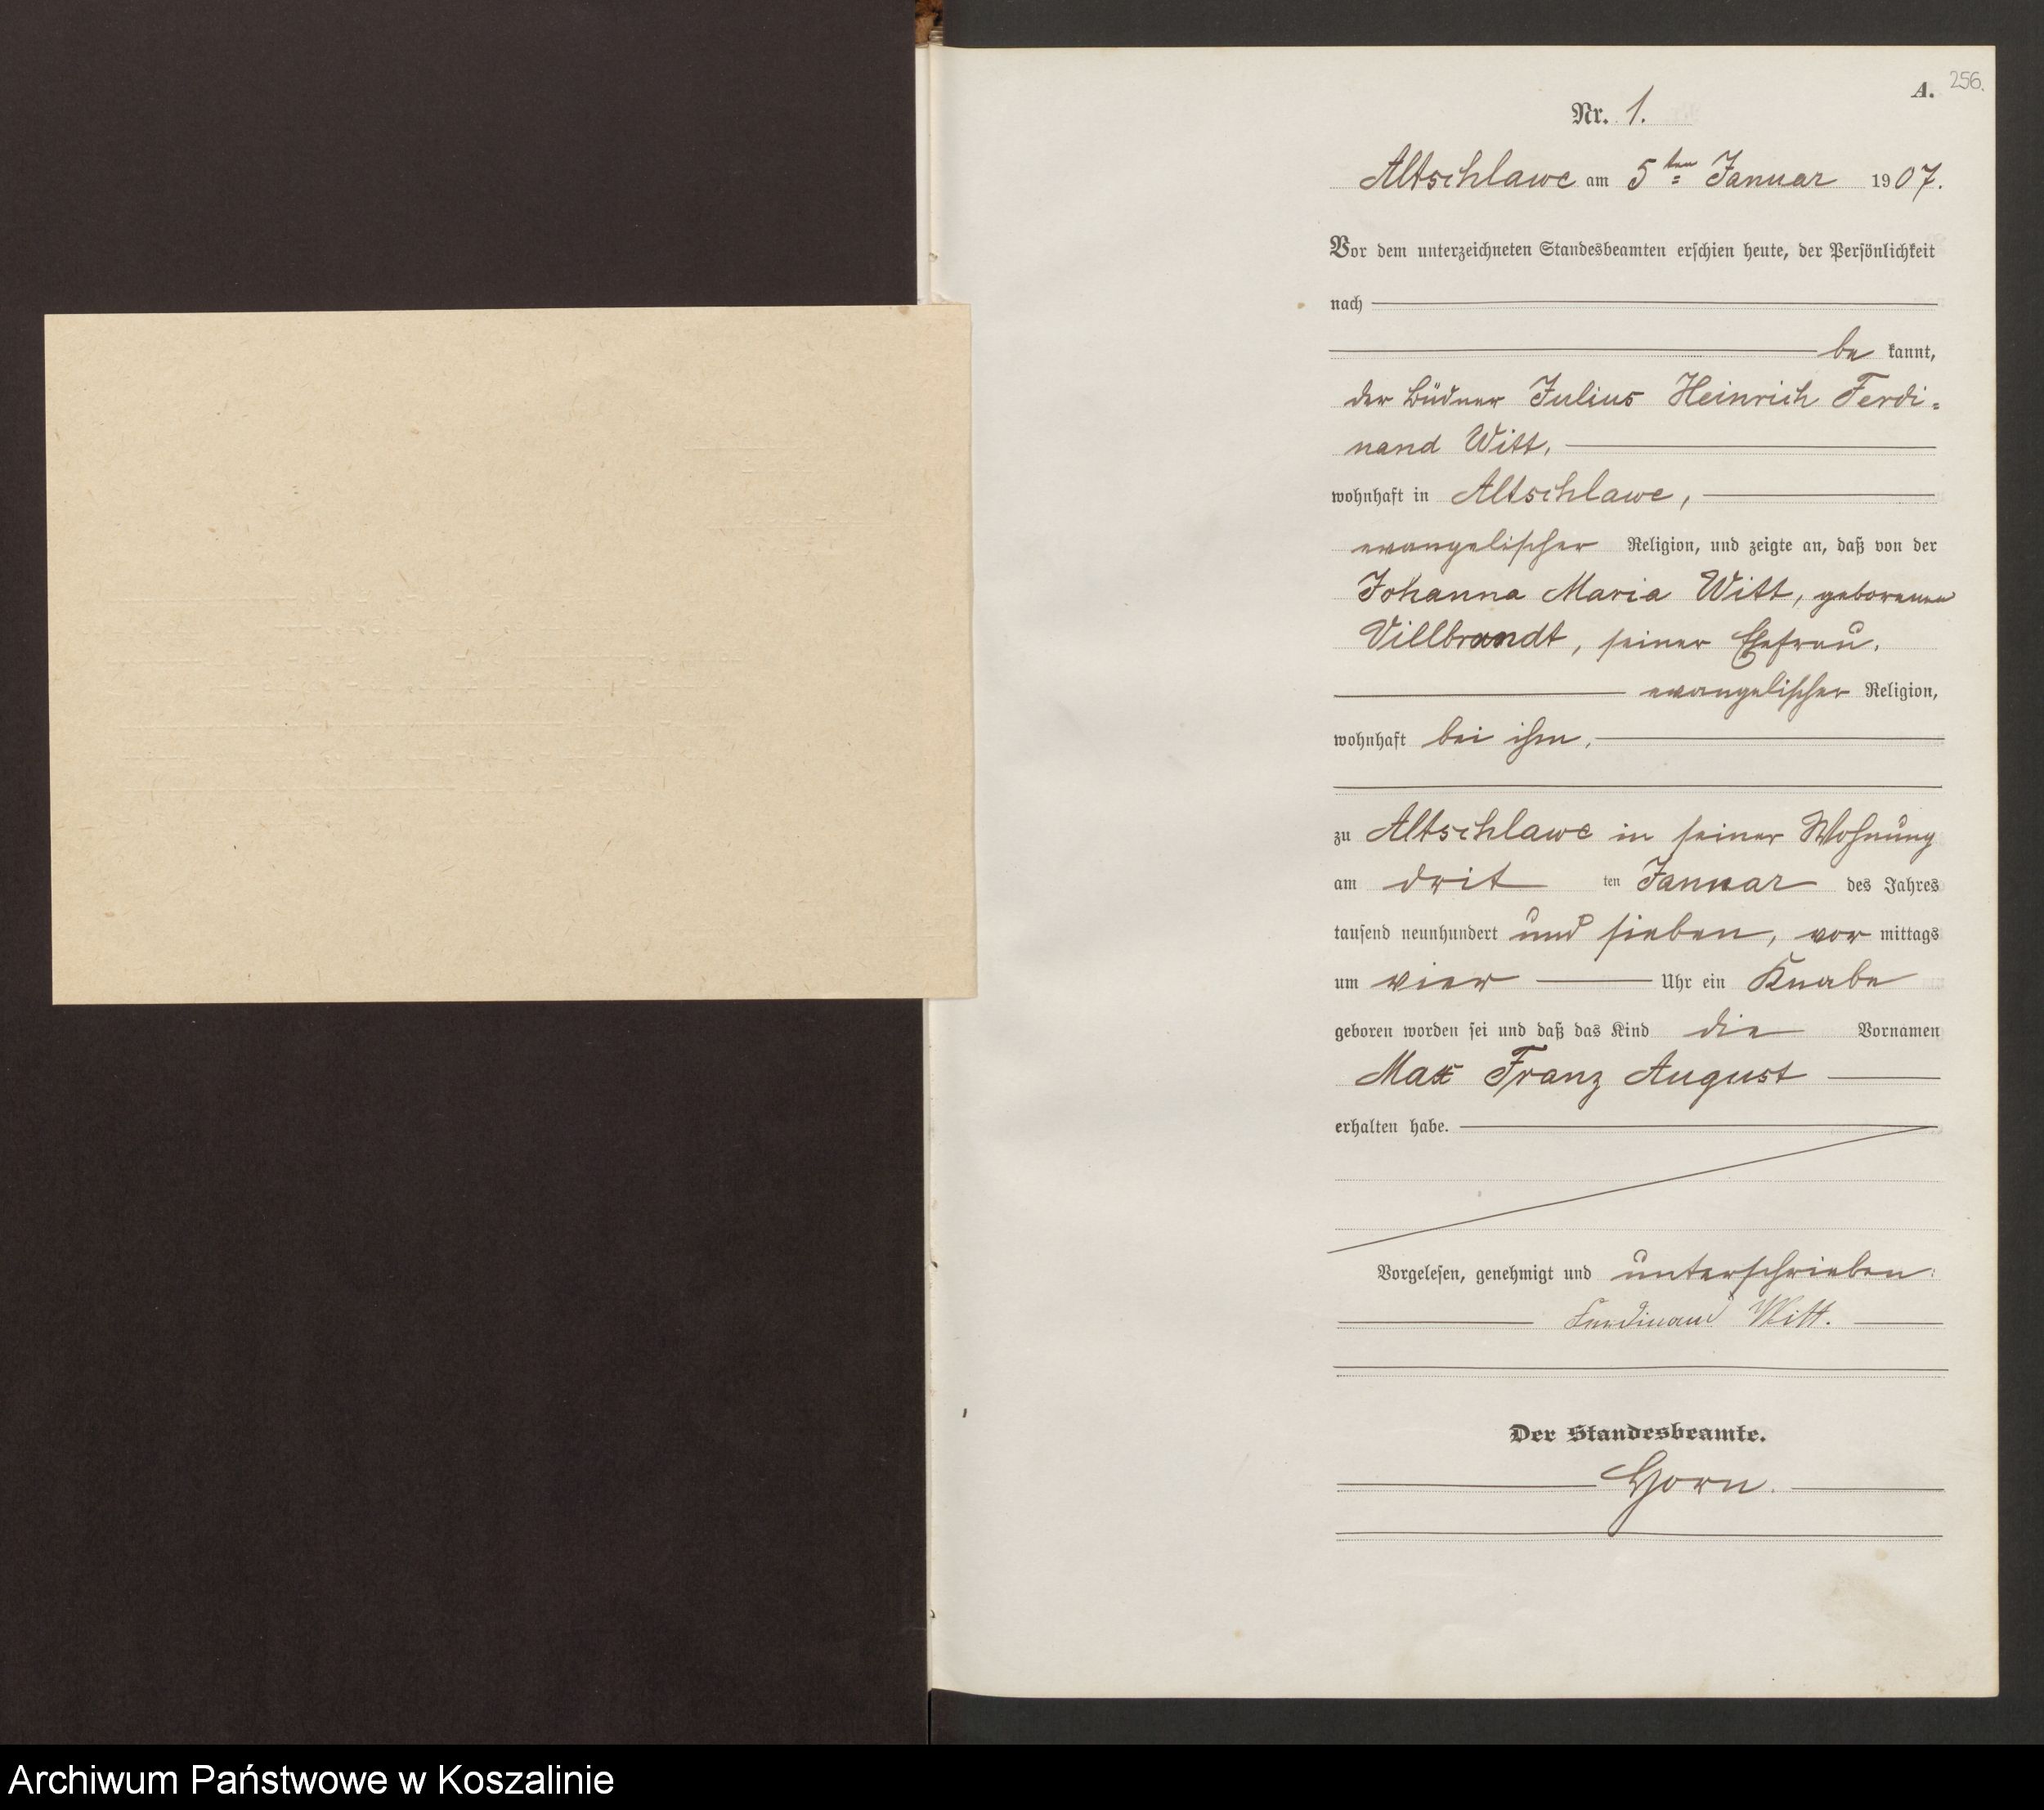 A. 256.
Nr. 1.
Altschlawe am 5ten Januar 1907.
Vor dem unterzeichneten Standesbeamten erschien heute, der Persönlichkeit
nach
be kannt,
der Büdner Julius Heinrich Ferdi=
nand Witt,
wohnhaft in Altschlawe,
evangelischer Religion, und zeigte an, daß von der
Johanna Maria Witt, geborenen
Villbrandt, seiner Ehefrau,
evangelischer Religion,
wohnhaft bei ihm,
zu Altschlawe in seiner Wohnung
am drit ten Januar des Jahres
tausend neunhundert und sieben, vor mittags
um vier Uhr ein Knabe
geboren worden sei und daß das Kind die Vornamen
Max Franz August
erhalten habe.
Vorgelesen, genehmigt und unterschrieben:
Ferdinand Witt.
Der Standesbeamte.
Horn.
Archiwum Państwowe w Koszalinie